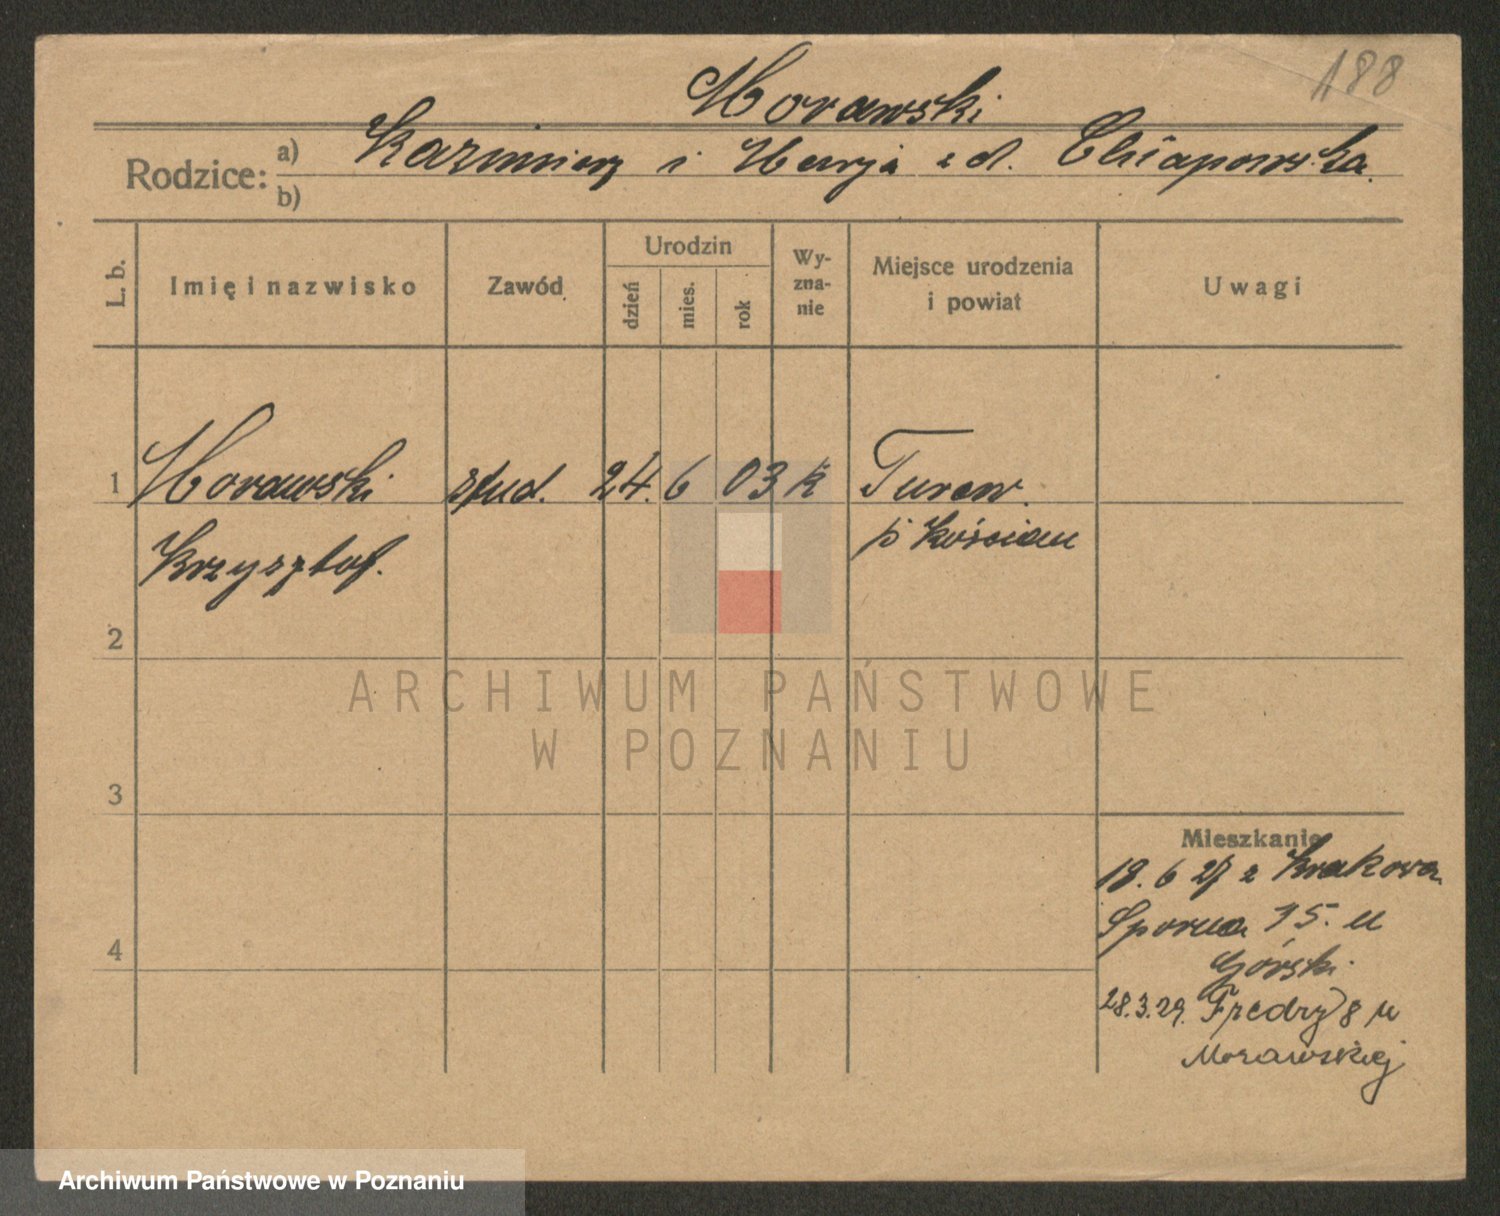 188
Morawski
Rodzice: a) Kazimierz i Marja z d. Chłapowska
b)
L. b. Imię i nazwisko Zawód Urodzin dzień mies. rok Wyznanie Miejsce urodzenia i powiat Uwagi
1 Morawski stud. 24. 6 03 k Turew.
Krzysztof. p Kościan
2
3
4
Mieszkanie
18. 6 27 z Krakowa
Sporna 15. u
Górski.
28.3.29. Fredry 8 u
Morawskiej
ARCHIWUM PAŃSTWOWE
W POZNANIU
Archiwum Państwowe w Poznaniu